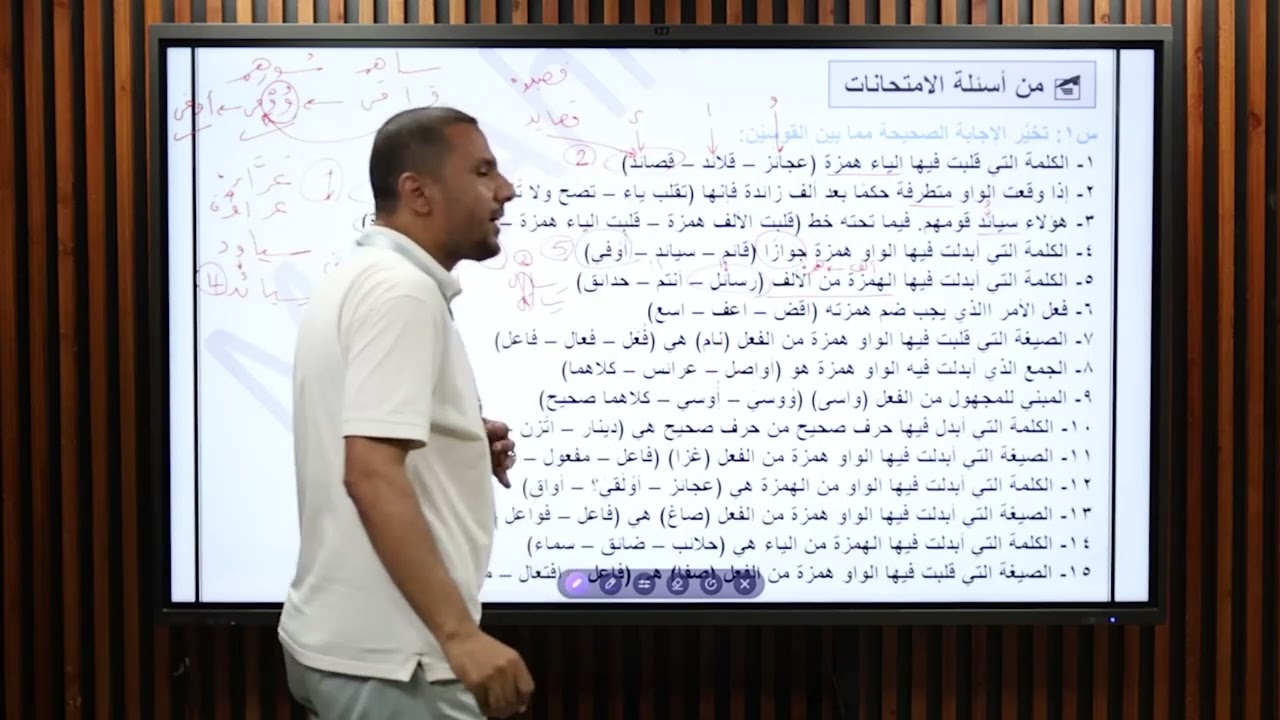 من أسئلة الامتحانات
س١: تخيّر الإجابة الصحيحة مما بين القوسين:
١- الكلمة التي قلبت فيها الياء همزة (عجائز – قلائد – قصائد)
٢- إذا وقعت الواو متطرفة حكمًا بعد ألف زائدة فإنها (تقلب ياء – تصح ولا
٣- هؤلاء سيائد قومهم. فيما تحته خط (قلبت الألف همزة – قلبت الياء همزة –
٤- الكلمة التي أبدلت فيها الواو همزة جوازًا (قائم – سيائد – أوفي)
٥- الكلمة التي أبدلت فيها الهمزة من الألف (رسائل – أنتم – حدائق)
٦- فعل الأمر االذي يجب ضم همزته (اقض – اعف – اسع)
٧- الصيغة التي قلبت فيها الواو همزة من الفعل (نام) هي (فُعَل – فعال – فاعل)
٨- الجمع الذي أبدلت فيه الواو همزة هو (أواصل – عرائس – كلاهما)
٩- المبني للمجهول من الفعل (واسى) (وُوسي – أوسي – كلاهما صحيح)
١٠- الكلمة التي أبدل فيها حرف صحيح من حرف صحيح هي (دينار – اتّزن
١١- الصيغة التي أبدلت فيها الواو همزة من الفعل (غزا) (فاعل – مفعول –
١٢- الكلمة التي أبدلت فيها الواو من الهمزة هي (عجائز – أؤلقي؟ – أواق)
١٣- الصيغة التي أبدلت فيها الواو همزة من الفعل (صاغ) هي (فاعل – فواعل
١٤- الكلمة التي أبدلت فيها الهمزة من الياء هي (حلائب – ضائق – سماء)
١٥- الصيغة التي قلبت فيها الواو همزة من الفعل (صفا) هي (فاعل – افتعال –
قصيدة
قصايد
سياود
سيائد